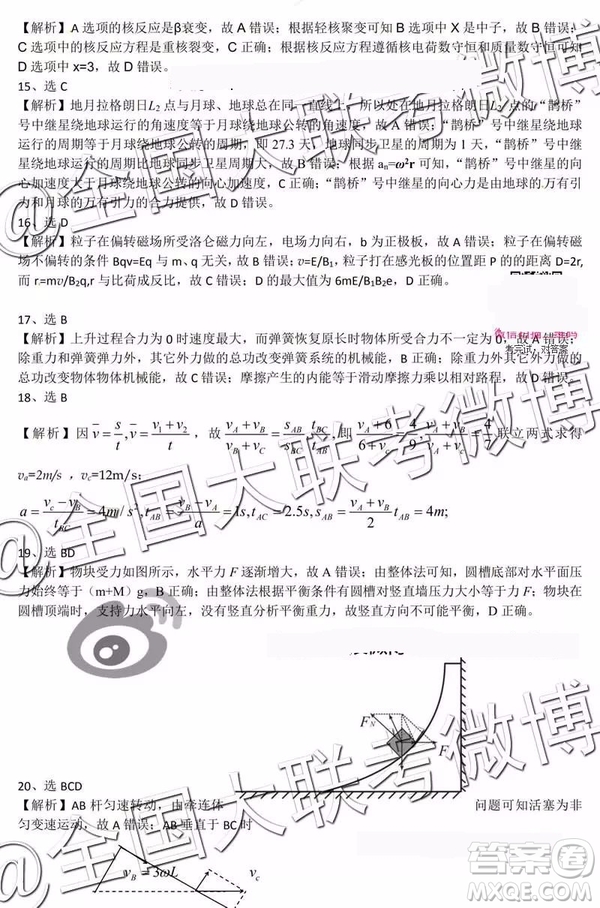 【解析】A 选项的核反应是β衰变，故 A 错误；根据轻核聚变可知 B 选项中 X 是中子，故 B 错误；
C 选项中的核反应方程是重核裂变，C 正确；根据核反应方程遵循核电荷数守恒和质量数守恒可知
D 选项中 x=3，故 D 错误。
15、选 C
【解析】地月拉格朗日L₂ 点与月球、地球总在同一直线上，所以处在地月拉格朗日L₂ 点的“鹊桥”
号中继星绕地球运行的角速度等于月球绕地球公转的角速度，故 A 错误；“鹊桥”号中继星绕地球
运行的周期等于月球绕地球公转的周期，即 27.3 天，地球同步卫星的周期为 1 天，“鹊桥”号中继
星绕地球运行的周期比地球同步卫星周期大，故 B 错误；根据 aₙ=ω²r 可知，“鹊桥”号中继星的向
心加速度大于月球绕地球公转的向心加速度，C 正确；“鹊桥”号中继星的向心力是由地球的万有引
力和月球的万有引力的合力提供，故 D 错误。
16、选 D
【解析】粒子在偏转磁场所受洛仑磁力向左，电场力向右，b 为正极板，故 A 错误；粒子在偏转磁
场不偏转的条件 Bqv=Eq 与 m、q 无关，故 B 错误；v=E/B₁，粒子打在感光板的位置距 P 的的距离 D=2r,
而 r=mv/B₂q,r 与比荷成反比，故 C 错误；D 的最大值为 6mE/B₁B₂e，D 正确。
17、选 B
【解析】上升过程合力为 0 时速度最大，而弹簧恢复原长时物体所受合力不一定为 0，故 A 错误；
除重力和弹簧弹力外，其它外力做的总功改变弹簧系统的机械能，故 B 正确；除重力外其它外力做的
总功改变物体物体机械能，故 C 错误；摩擦产生的内能等于滑动摩擦力乘以相对路程，故 D 错误。
考完试，对答案
18、选 B
【解析】因 v̄=s/t, v̄=(v₁+v₂)/t ，故 (v_A+v_B)/(v_B+v_C)=(s_AB/t_AB)/(s_BC/t_BC), 即 (v_A+6)/(6+v_C)=4/9, (v_A+v_B)/(v_B+v_C)=4/9, 联立两式求得
vₐ=2m/s ，v_c=12m/s；
a=(v_c−v_B)/t_BC=4m/s², t_AB=(v_B−v_A)/a=1s, t_AC=2.5s, s_AB=(v_A+v_B)/2 t_AB=4m;
19、选 BD
【解析】物块受力如图所示，水平力 F 逐渐增大，故 A 错误；由整体法可知，圆槽底部对水平面压
力始终等于（m+M）g，B 正确；由整体法根据平衡条件有圆槽对竖直墙压力大小等于力 F；物块在
圆槽顶端时，支持力水平向左，没有竖直分析平衡重力，故竖直方向不可能平衡，D 正确。
F_N
F
20、选 BCD
【解析】AB 杆匀速转动，由牵连体 问题可知活塞为非
匀变速运动，故 A 错误；AB 垂直于 BC 时
v_B = 3ωL
v_c
@全国大联考微博
@全国大联考微博
@全国大联考微博
答案圈
MXQE.COM